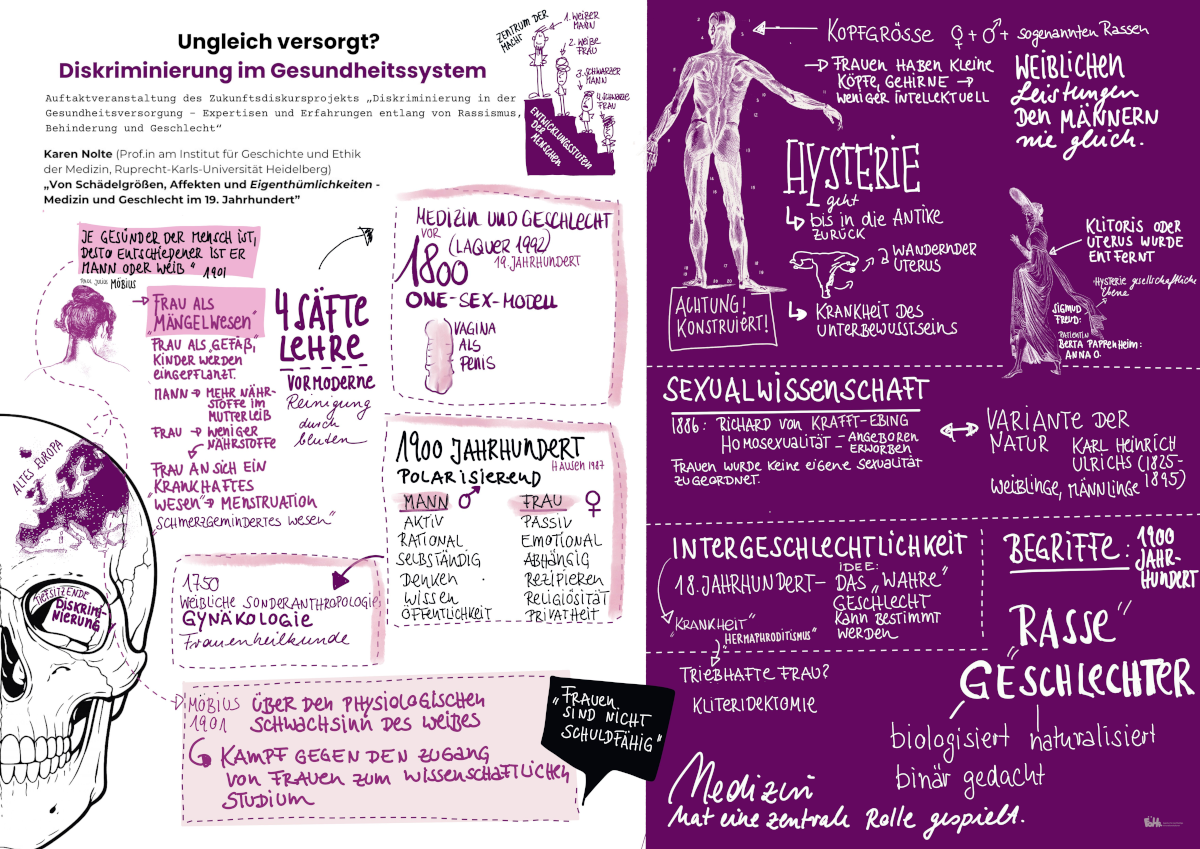 Ungleich versorgt?
Diskriminierung im Gesundheitssystem
Auftaktveranstaltung des Zukunftsdiskursprojekts „Diskriminierung in der
Gesundheitsversorgung – Expertisen und Erfahrungen entlang von Rassismus,
Behinderung und Geschlecht“
Karen Nolte (Prof.in am Institut für Geschichte und Ethik
der Medizin, Ruprecht-Karls-Universität Heidelberg)
„Von Schädelgrößen, Affekten und Eigenthümlichkeiten -
Medizin und Geschlecht im 19. Jahrhundert”
ZENTRUM DER
MACHT
1. WEIßER
MANN
2. WEIßE
FRAU
3. SCHWARZER
MANN
4. SCHWARZE
FRAU
ENTWICKLUNGSSTUFEN
DER
MENSCHEN
JE GESÜNDER DER MENSCH IST,
DESTO ENTSCHIEDENER IST ER
MANN ODER WEIB “ 1901
PAUL JULIUS MÖBIUS
FRAU ALS
„MÄNGELWESEN“
FRAU ALS „GEFÄß“,
KINDER WERDEN
EINGEPFLANZT.
MANN → MEHR NÄHR-
STOFFE IM
MUTTERLEIB
FRAU → WENIGER
NÄHRSTOFFE
FRAU AN SICH EIN
KRANKHAFTES
„WESEN“ → MENSTRUATION
„SCHMERZGEMINDERTES WESEN“
4 SÄFTE
LEHRE
VORMODERNE
Reinigung
durch
bluten
MEDIZIN UND GESCHLECHT
VOR
1800
(LAQUER 1992)
19. JAHRHUNDERT
ONE-SEX-MODELL
VAGINA
ALS
PENIS
1900 JAHRHUNDERT
HAUSEN 1987
POLARISIEREND
MANN ♂ FRAU ♀
AKTIV PASSIV
RATIONAL EMOTIONAL
SELBSTÄNDIG ABHÄNGIG
DENKEN REZIPIEREN
WISSEN RELIGIÖSITÄT
ÖFFENTLICHKEIT PRIVATHEIT
ALTES EUROPA
TIEFSITZENDE
DISKRIMI-
NIERUNG
1750
WEIBLICHE SONDERANTHROPOLOGIE
GYNÄKOLOGIE
Frauenheilkunde
MÖBIUS
1901
ÜBER DEN PHYSIOLOGISCHEN
SCHWACHSINN DES WEIBES
KAMPF GEGEN DEN ZUGANG
VON FRAUEN ZUM WISSENSCHAFTLICHEN
STUDIUM
„FRAUEN
SIND NICHT
SCHULDFÄHIG“
KOPFGRÖSSE ♀ + ♂ + sogenannten Rassen
→ FRAUEN HABEN KLEINE
KÖPFE, GEHIRNE →
WENIGER INTELLEKTUELL
WEIBLICHEN
Leistungen
DEN MÄNNERN
nie gleich.
HYSTERIE
geht
bis in die ANTIKE
ZURÜCK
WANDERNDER
UTERUS
KRANKHEIT DES
UNTERBEWUSSTSEINS
ACHTUNG!
KONSTRUIERT!
KLITORIS ODER
UTERUS WURDE
ENTFERNT
HYSTERIE gesellschaftliche
Ebene
SIGMUD
FREUD:
PATIENTIN
BERTA PAPPENHEIM:
ANNA O.
SEXUALWISSENSCHAFT
1886: RICHARD VON KRAFFT-EBING
HOMOSEXUALITÄT – ANGEBOREN
ERWORBEN
FRAUEN WURDE KEINE EIGENE SEXUALITÄT
ZUGEORDNET.
VARIANTE DER
NATUR KARL HEINRICH
ULRICHS (1825-
1895)
WEIBLINGE, MÄNNLINGE
INTERGESCHLECHTLICHKEIT
18. JAHRHUNDERT –
IDEE:
DAS „WAHRE“
GESCHLECHT
KANN BESTIMMT
WERDEN
„KRANKHEIT“
„HERMAPHRODITISMUS“
TRIEBHAFTE FRAU?
KLITERIDEKTOMIE
BEGRIFFE: 1900
JAHR-
HUNDERT
„RASSE“
GESCHLECHTER
biologisiert naturalisiert
binär gedacht
Medizin
hat eine zentrale Rolle gespielt.